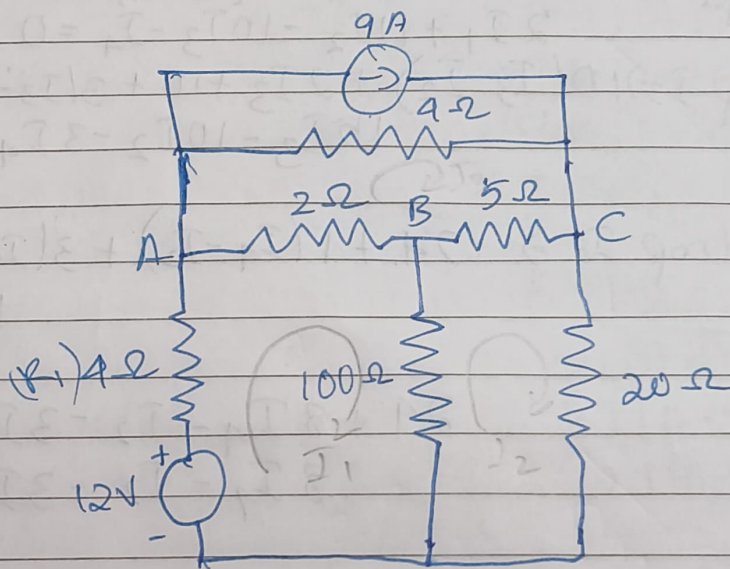 9A
4Ω
2Ω
B
5Ω
A
C
(R1)4Ω
100Ω
20Ω
I1
I2
+
12V
-